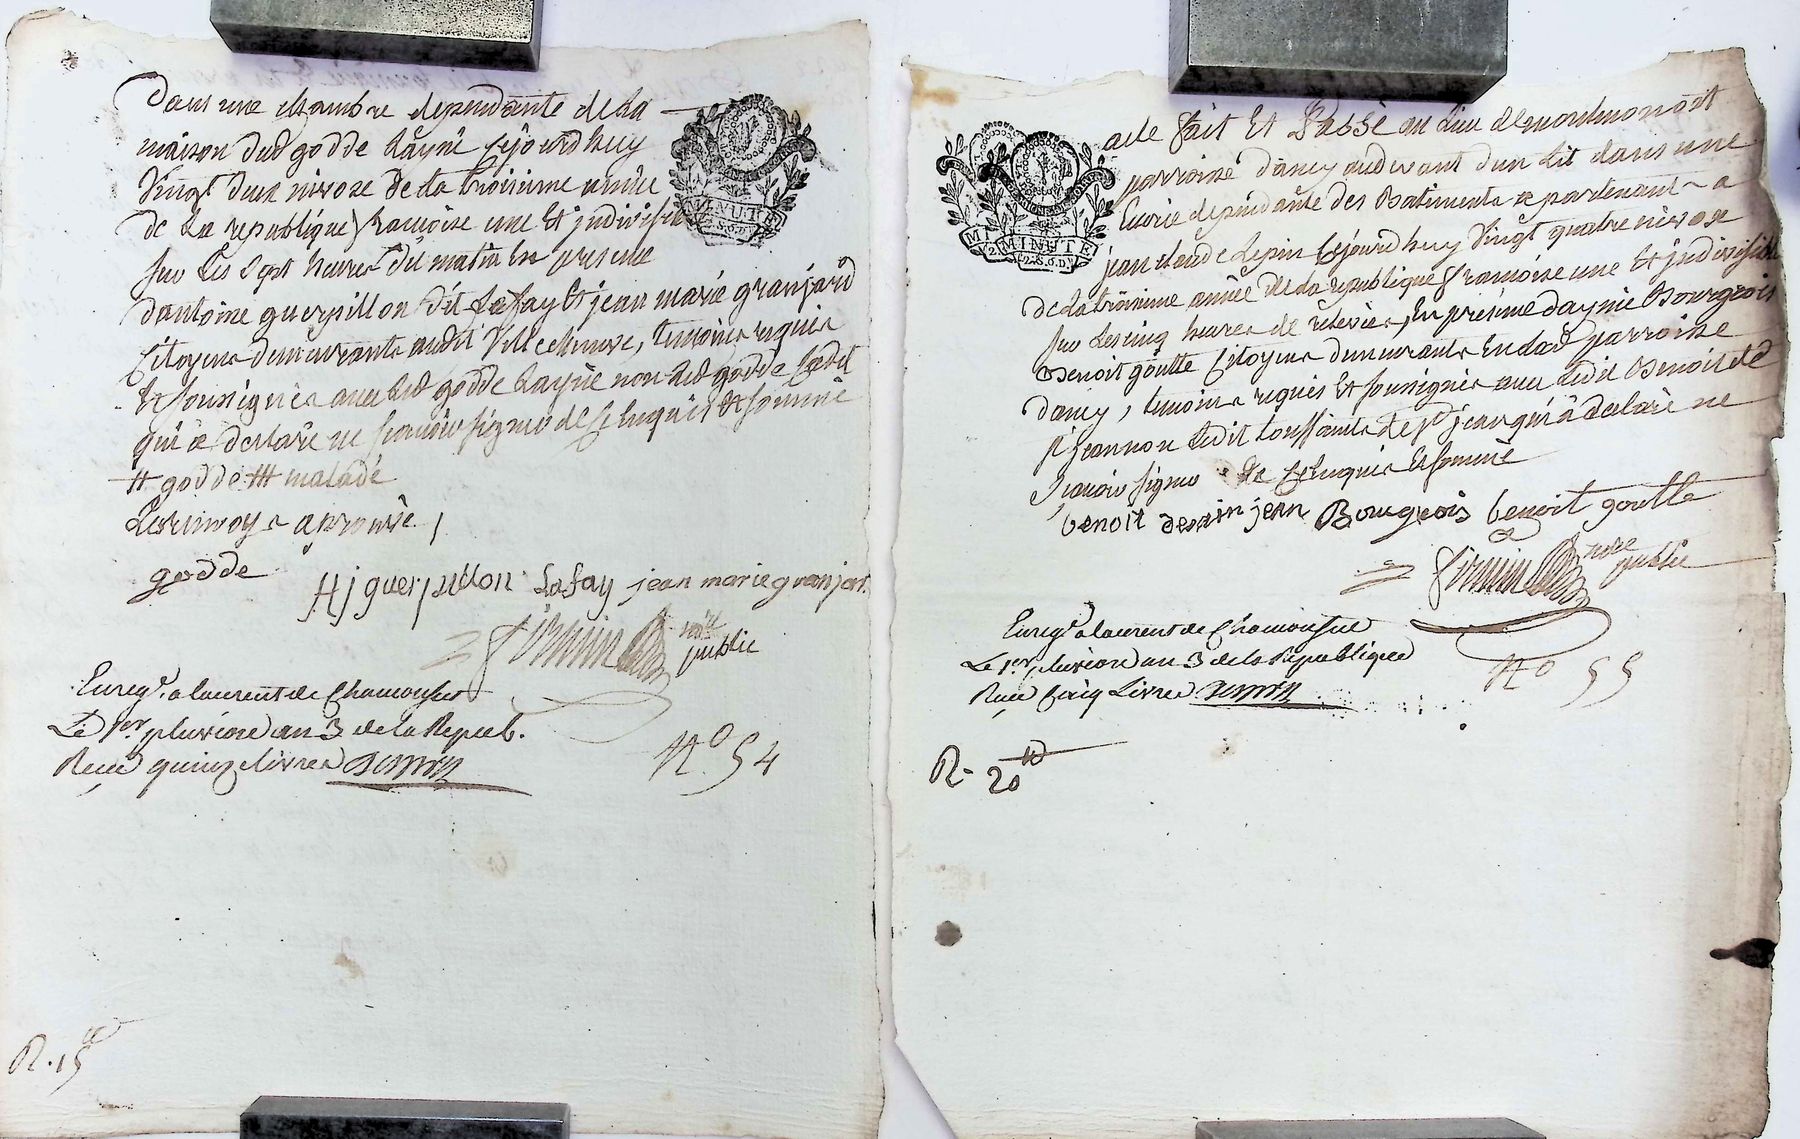 Dans une chambre dependante de la
maison dud godde layné cejourdhuy
Vingt deux nivose de la troisieme année
de La republique francoise une Et jndivisible
sur Les Sept heures du matin En presence
dantoine guerpillon dit Lafay Et jean marie granjard
Citoyens demeurants audit Villecheneve, temoins requis
Et soussignés avec led godde layné non led godde Cadet
qui a declaré ne scavoir signer de Ce Enquis Et sommé
# godde ## malade
Les renvoys aprouvé,
godde
guerpillon Lafay jean marie granjard
MINUTE
firmin nore
public
Enregé. a laurent de Chamousset
Le 1er. pluviose an 3 de la Repub.
Recu quinze livres
N.º 54
R. 15
acte fait Et Passé au Lieu de montmonost
parroisse dancy audevant dun Lit dans une
Ecurie dependante des Batiments apartenant a
jean claude Lepin Cejourdhuy Vingt quatre nivose
de La troisieme année de la republique francoise une Et jndivisible
sur Les cinq heures de relevée, En presence daymé Bourgeois
Benoit goutte Citoyens demeurants En lad parroisse
dancy, temoins requis Et soussignés avec Ledit Benoit
non Ledit toussaint qui a declaré ne
scavoir signer de Ce Enquis Et sommé
benoit jean Bourgeois benoit goutte
MINUTE
firmin nore
public
Enregé. a laurent de Chamousset
Le 1er. pluviose an 3 de la Republique
Recu Cinq Livres
Nº 55
R. 20